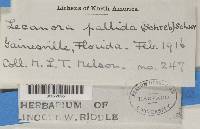 Lichens of North America
Lecanora pallida (Schreb) Schaer
Gainesville, Florida. Feb. 1916
Coll. N. L. T. Nelson. no. 247
HERBARIUM OF
LINCOLN W. RIDDLE
HARVARD